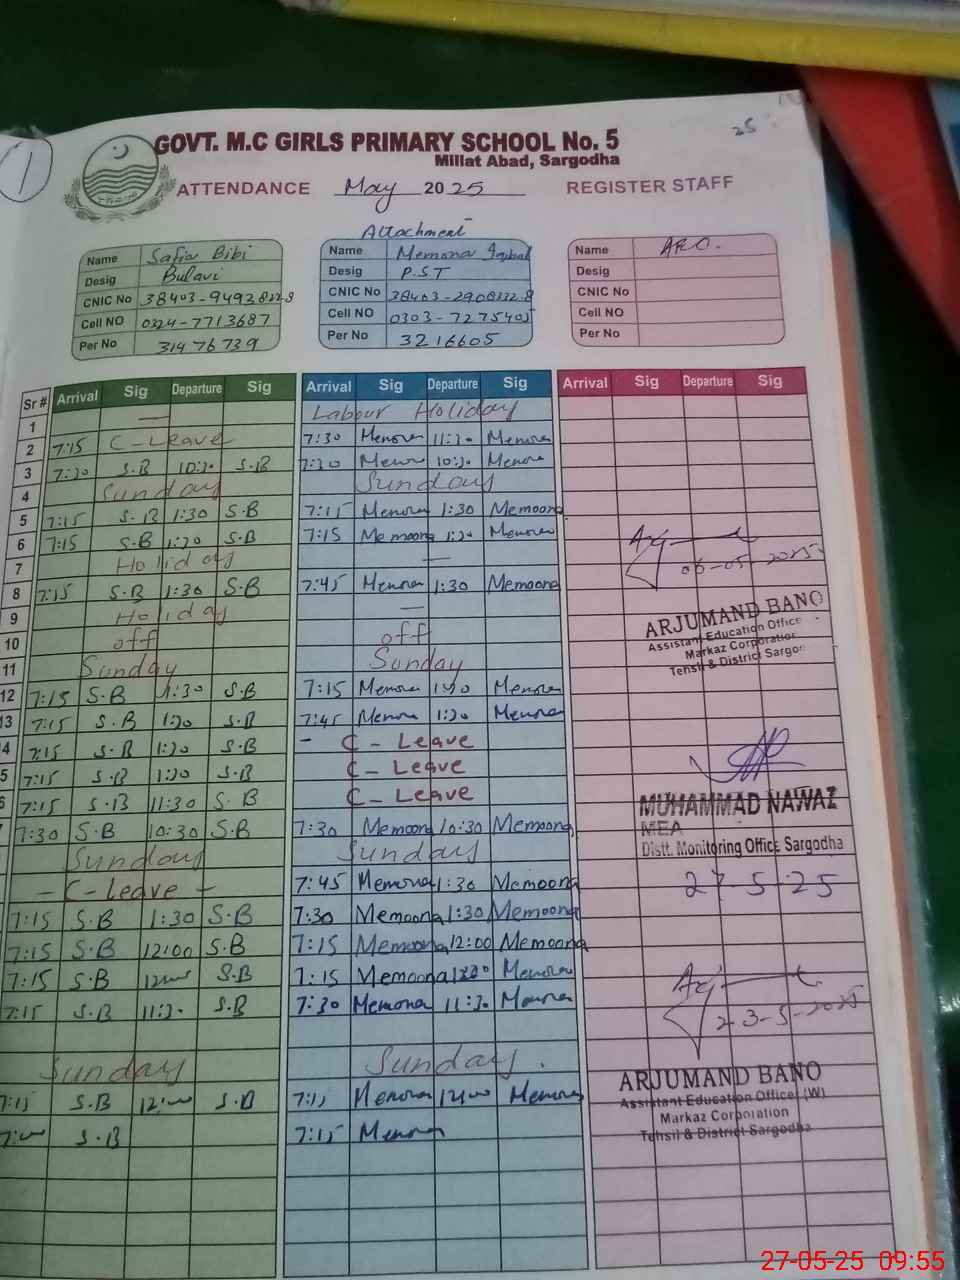 25
1
GOVT. M.C GIRLS PRIMARY SCHOOL No. 5
Millat Abad, Sargodha
ATTENDANCE May 2025 REGISTER STAFF
Attachment
Name Safia Bibi
Desig Bulavi
CNIC No 38403-9492822-8
Cell NO 0324-7713687
Per No 31476739
Name Memona Iqbal
Desig P.ST
CNIC No 38403-2908322-8
Cell NO 0303-7275405
Per No 3216605
Name AEO.
Desig
CNIC No
Cell NO
Per No
Sr # Arrival Sig Departure Sig Arrival Sig Departure Sig Arrival Sig Departure Sig
1 — Labour Holiday
2 7:15 C-Leave 7:30 Memona 11:30 Memona
3 7:30 S.B 10:30 S.B 7:30 Memona 10:30 Memona
4 Sunday Sunday
5 7:15 S.B 1:30 S.B 7:15 Memona 1:30 Memoona
6 7:15 S.B 1:30 S.B 7:15 Memoona 1:30 Memona
7 Holiday —
8 7:15 S.B 1:30 S.B 7:45 Memona 1:30 Memoona
9 Holiday —
10 off off
11 Sunday Sunday
12 7:15 S.B 1:30 S.B 7:15 Memona 1:30 Memona
13 7:15 S.B 1:30 S.B 7:45 Memona 1:30 Memona
4 7:15 S.B 1:30 S.B - C-Leave
5 7:15 S.B 1:30 S.B C-Leave
6 7:15 S.B 11:30 S.B C-Leave
7:30 S.B 10:30 S.B 7:30 Memoona 10:30 Memoona
Sunday Sunday
- C-Leave - 7:45 Memona 1:30 Memoona
7:15 S.B 1:30 S.B 7:30 Memoona 1:30 Memoona
7:15 S.B 12:00 S.B 7:15 Memoona 12:00 Memoona
7:15 S.B 12:00 S.B 7:15 Memoona Memona
7:15 S.B 11:30 S.B 7:30 Memona 11:30 Memona
Sunday Sunday.
7:15 S.B 12:00 S.B 7:15 Memona 12:00 Memona
7:00 S.B 7:15 Memona
06-05-2025
ARJUMAND BANO
Assistant Education Office
Markaz Corporation
Tehsil & District Sargo
MUHAMMAD NAWAZ
MEA
Distt. Monitoring Office Sargodha
27-5-25
23-5-2025
ARJUMAND BANO
Assistant Education Officer (W)
Markaz Corporation
Tehsil & District Sargodha
27-05-25 09:55